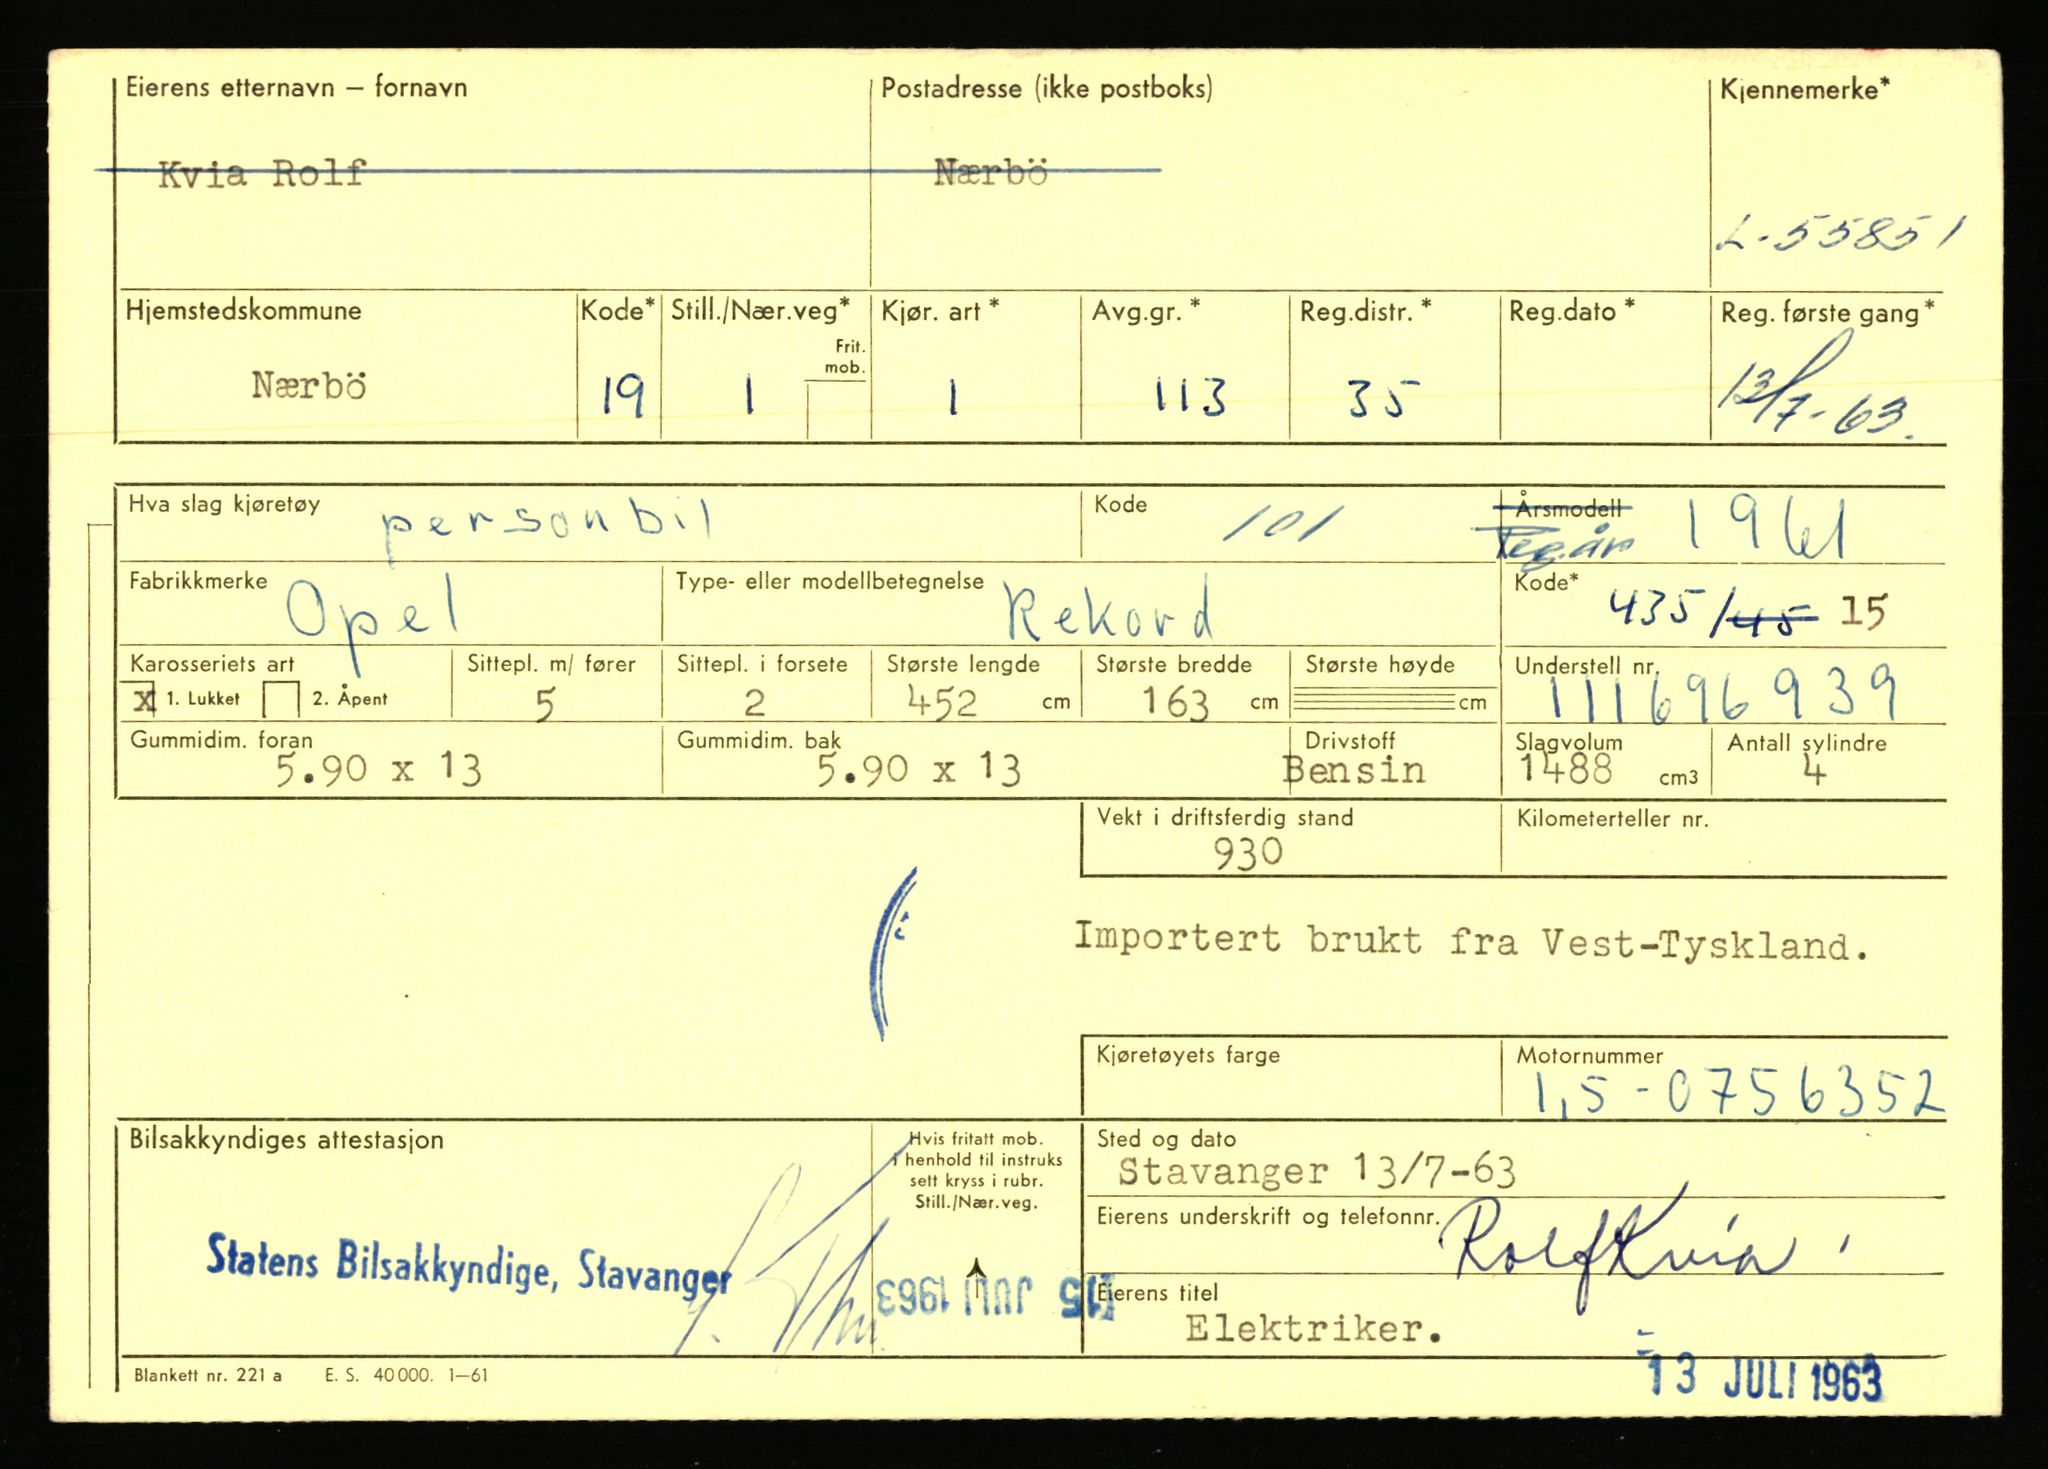 Eierens etternavn – fornavn
Postadresse (ikke postboks)
Kjennemerke*
Kvia Rolf
Nærbö
L-55851
Hjemstedskommune
Kode*
Still./Nær.veg*
Kjør. art *
Avg.gr. *
Reg.distr. *
Reg.dato *
Reg. første gang *
Frit.
mob.
Nærbö
19
1
1
113
35
13/7-63.
Hva slag kjøretøy
personbil
Kode
101
Årsmodell
Reg.år
1961
Fabrikkmerke
Opel
Type- eller modellbetegnelse
Rekord
Kode*
435/45 15
Karosseriets art
Sittepl. m/ fører
Sittepl. i forsete
Største lengde
Største bredde
Største høyde
Understell nr.
x 1. Lukket
2. Åpent
5
2
452 cm
163 cm
cm
111696939
Gummidim. foran
Gummidim. bak
Drivstoff
Slagvolum
Antall sylindre
5.90 x 13
5.90 x 13
Bensin
1488 cm3
4
Vekt i driftsferdig stand
Kilometerteller nr.
930
Importert brukt fra Vest-Tyskland.
Kjøretøyets farge
Motornummer
1,5-0756352
Bilsakkyndiges attestasjon
Hvis fritatt mob.
i henhold til instruks
sett kryss i rubr.
Still./Nær.veg.
Sted og dato
Stavanger 13/7-63
Eierens underskrift og telefonnr.
Rolf Kvia
Statens Bilsakkyndige, Stavanger
15 JULI 1963
Eierens titel
Elektriker.
Blankett nr. 221 a E. S. 40 000. 1–61
13 JULI 1963